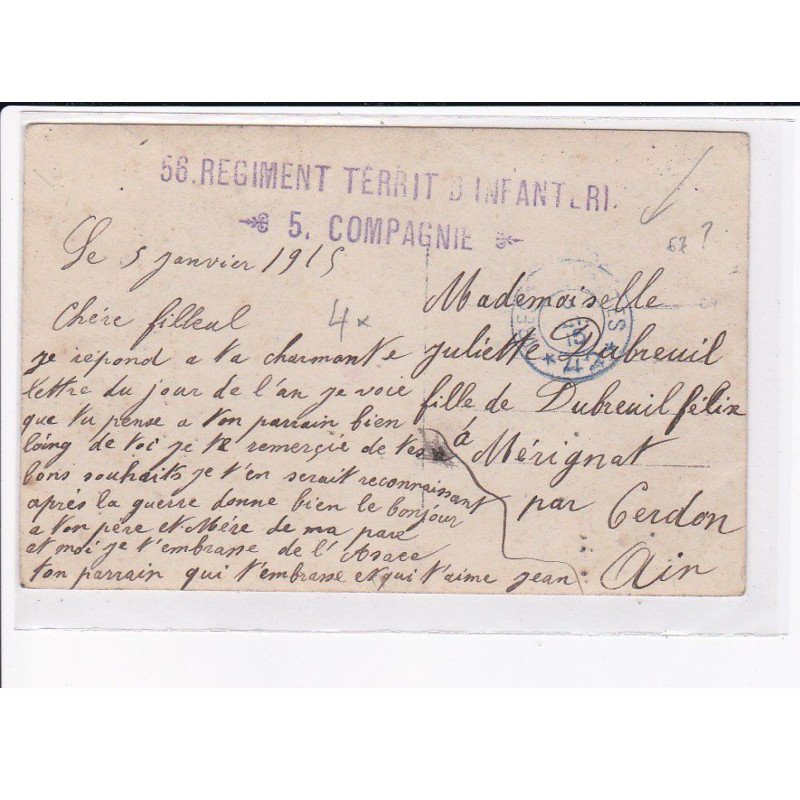 56. REGIMENT TERRIT D'INFANTERI.
5. COMPAGNIE
67 ?
Le 5 janvier 1915
Chére filleul
4x
je répond a ta charmante
lettre du jour de l'an je voie
que tu pense a ton parrain bien
loing de toi je te remerçie de tes
bons souhaits je t'en serait reconnaissant
après la guerre donne bien le bonjour
a ton père et Mére de ma pare
et moi je t'embrasse de l'Alsace
ton parrain qui t'embrasse et qui t'aime jean
Mademoiselle
Juliette Dubreuil
fille de Dubreuil félix
à Mérignat
par Cerdon
Ain